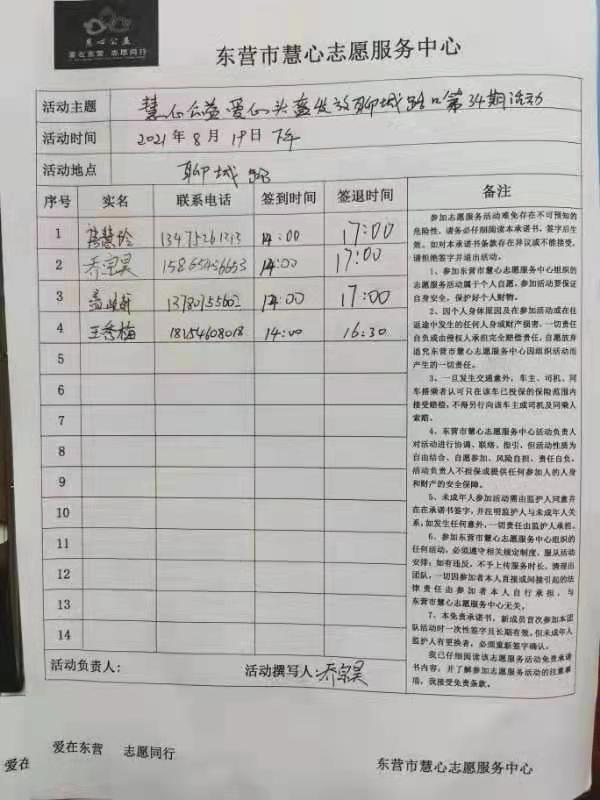 慧心公益
爱在东营 志愿同行
东营市慧心志愿服务中心
活动主题 慧心公益爱心头盔发放聊城路口第34期活动
活动时间 2021年8月19日下午
活动地点 聊城路
序号 实名 联系电话 签到时间 签退时间 备注
1 14:00 17:00
2 乔宗昊 14:00 17:00
3 14:00 17:00
4 王秀梅 18154608018 14:00 16:30
5
6
7
8
9
10
11
12
13
14
参加志愿服务活动难免存在不可预知的
危险性，请务必仔细阅读本承诺书，签字后生
效。如对本承诺书条款存在异议或不能接受，
请拒绝签字并退出活动。
1、参加东营市慧心志愿服务中心组织的
志愿服务活动属于个人自愿。参加活动要保证
自身安全，保护好个人财物。
2、因个人身体原因及在参加活动或在往
返途中发生的任何人身或财产损害，一切责任
自负或由侵权人承担完全赔偿责任，自愿放弃
追究东营市慧心志愿服务中心因组织活动而
产生的一切责任。
3、一旦发生交通意外，车主、司机、同车
搭乘者认可只在该车已投保的保险范围内
接受赔偿，不得另行向该车主或司机及同乘人
索赔。
4、东营市慧心志愿服务中心活动负责人
对活动进行协调、联络、指引，但活动性质为
自由结合、自愿参加、风险自担、责任自负。
活动负责人不担保或提供任何参加人的人身
和财产的安全保障。
5、未成年人参加活动需由监护人同意并
在在承诺书签字，并注明监护人与未成年人关
系，如发生任何意外，一切责任由监护人承担。
6、参加东营市慧心志愿服务中心组织的
任何活动，必须遵守相关规定制度、服从活动
安排；如有违反，不予上传服务时长，清理出
团队，一切因参加者本人直接或间接引起的法
律责任由参加者本人自行承担，与
东营市慧心志愿服务中心无关。
7、本免责承诺书，新成员首次参加本团
队活动时一次性签字且长期有效，但未成年人
监护人有更换者，必须重新签字确认。
我已仔细阅读该志愿服务活动免责承诺
书内容，并了解参加志愿服务活动的注意事
项，我接受免责条款。
活动负责人： 活动撰写人：乔宗昊
爱在东营 志愿同行
东营市慧心志愿服务中心
爱在